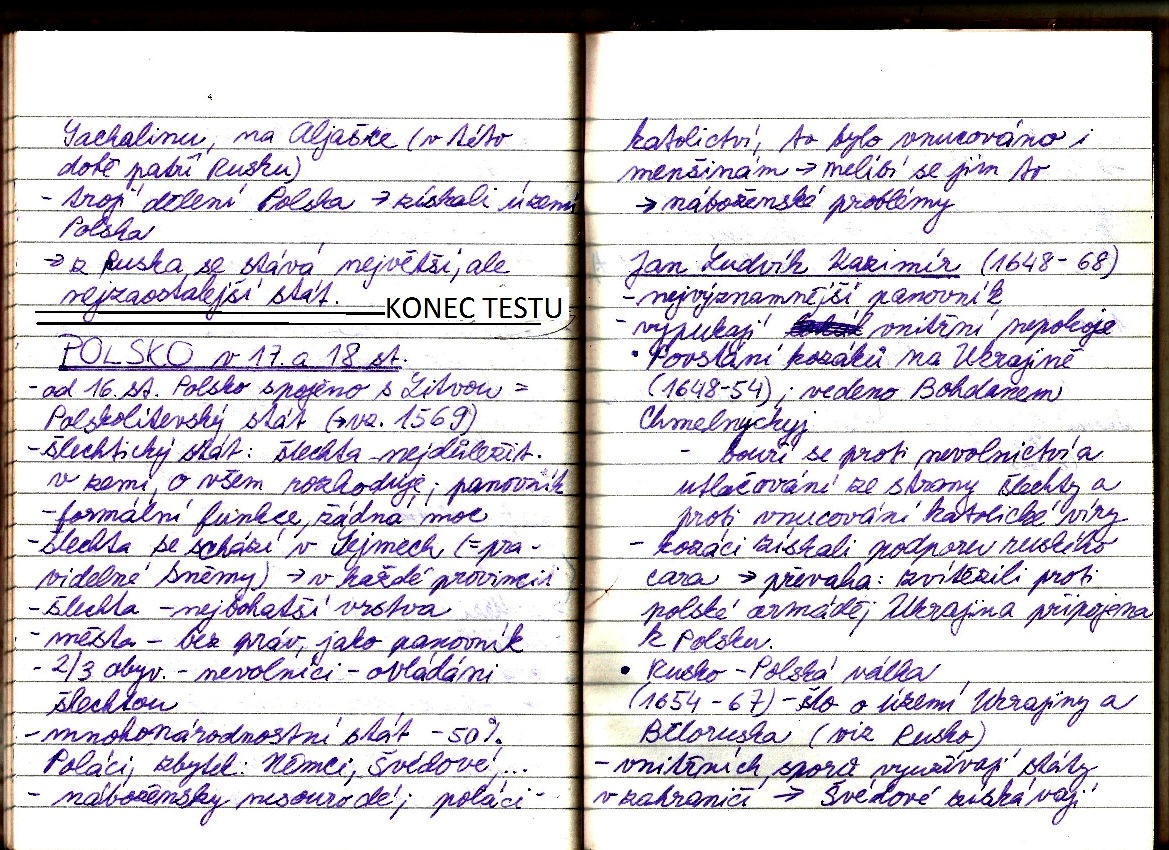 Sachalinu, na Aljašce (v této
době patří Rusku)
- trojí dělení Polska → získali území
Polska
→ z Ruska se stává největší, ale
nejzaostalejší stát.
KONEC TESTU
POLSKO v 17. a 18 st.
- od 16. st. Polsko spojeno s Litvou =
Polskolitevský stát (→vz. 1569)
- šlechtický stát: šlechta nejdůležit.
v zemi, o všem rozhoduje; panovník
- formální funkce, žádná moc
- šlechta se schází v Sejmech (=pra-
videlné sněmy) → v každé provincii
- šlechta - nejbohatší vrstva
- města - bez práv, jako panovník
- 2/3 obyv. - nevolníci - ovládáni
šlechtou
- mnohonárodnostní stát - 50%
Poláci, zbytek: Němci, Švédové,...
- nábožensky nesourodé; poláci -
katolictví, to bylo vnucováno i
menšinám → nelíbí se jim to
→ náboženské problémy
Jan Ludvík Kazimír (1648-68)
- nejvýznamnější panovník
- vypukají vnitřní nepokoje
• Povstání kozáků na Ukrajině
(1648-54); vedeno Bohdanem
Chmelnyckyj
- bouří se proti nevolnictví a
utlačování ze strany šlechty a
proti vnucování katolické víry
- kozáci získali podporu ruského
cara → převaha: zvítězili proti
polské armádě; Ukrajina připojena
k Polsku.
• Rusko - Polská válka
(1654 - 67) - šlo o území Ukrajiny a
Běloruska (viz Rusko)
- vnitřních sporů využívají státy
v zahraničí → Švédové získávají